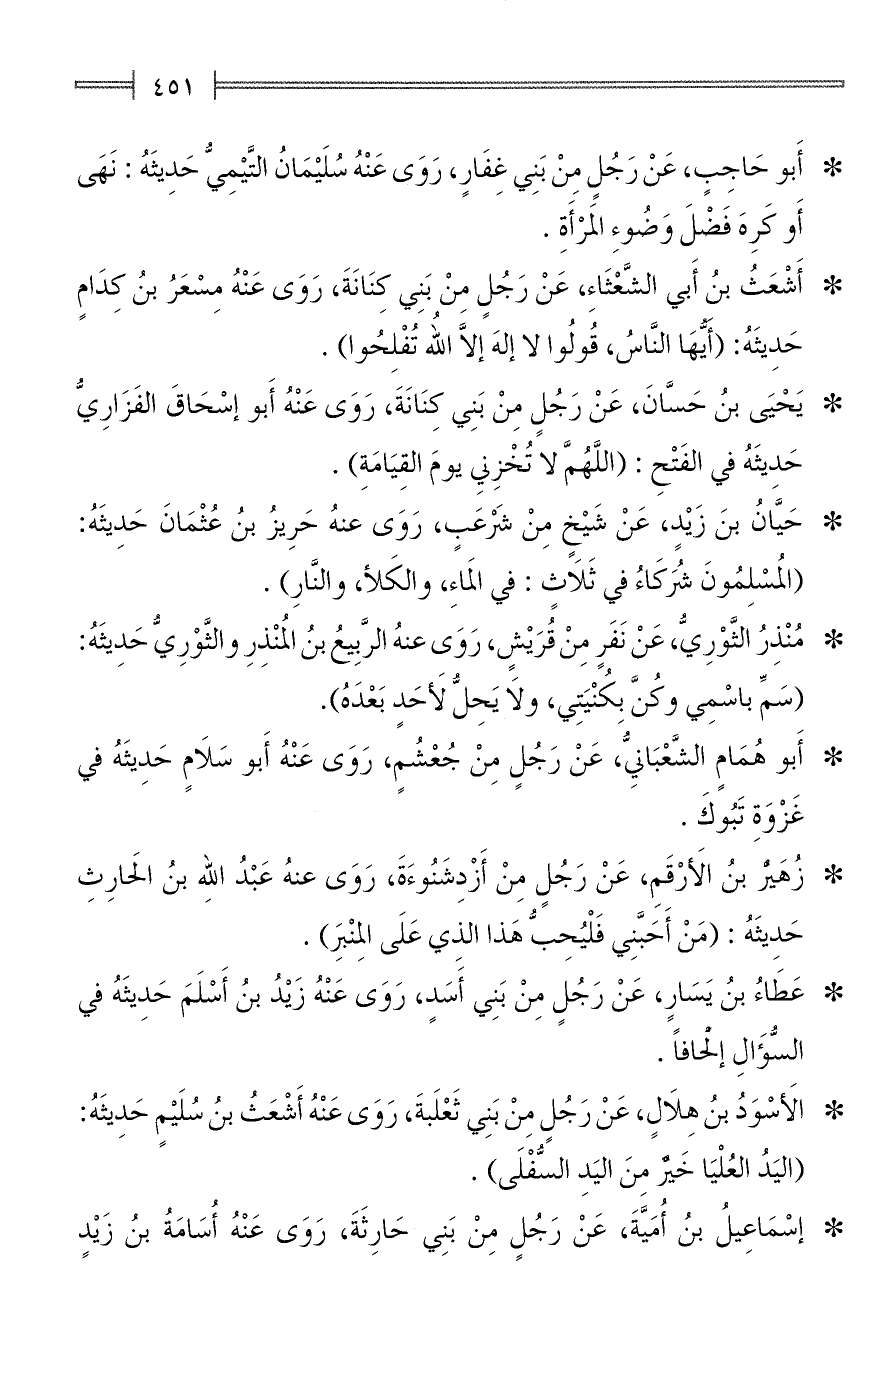 ٤٥١
* أَبو حَاجِبٍ، عَنْ رَجُلٍ مِنْ بَنِي غِفَارٍ، رَوَى عَنْهُ سُلَيْمَانُ التَّيْمِيُّ حَدِيثَهُ : نَهَى
أَو كَرِهَ فَضْلَ وَضُوءِ المَرْأَةِ .
* أَشْعَثُ بنُ أَبي الشَّعْثَاءِ، عَنْ رَجُلٍ مِنْ بَنِي كِنَانَةَ، رَوَى عَنْهُ مِسْعَرُ بنُ كِدَامٍ
حَدِيثَهُ: (أَيُّهَا النَّاسُ، قُولُوا لا إلهَ إلاَّ اللهُ تُفْلِحُوا) .
* يَحْيَى بنُ حَسَّانَ، عَنْ رَجُلٍ مِنْ بَنِي كِنَانَةَ، رَوَى عَنْهُ أَبو إسْحَاقَ الفَزَارِيُّ
حَدِيثَهُ في الفَتْحِ : (اللَّهُمَّ لا تُخْزِني يومَ القِيَامَةِ) .
* حَيَّانُ بنَ زَيْدٍ، عَنْ شَيْخٍ مِنْ شَرْعَبٍ، رَوَى عنهُ حَرِيزُ بنُ عُثْمَانَ حَدِيثَهُ:
(المُسْلِمُونَ شُرَكَاءُ في ثَلَاثٍ : في المَاءِ، والكَلأ، والنَّارِ) .
* مُنْذِرُ الثَّوْرِيُّ، عَنْ نَفَرٍ مِنْ قُرَيْشٍ، رَوَى عنهُ الرَّبِيعُ بنُ المُنْذِرِ والثَّوْرِيُّ حَدِيثَهُ:
(سَمِّ باسْمِي وكُنَّ بِكُنْيَتِي، ولَا يَحِلُّ لأَحَدٍ بَعْدَهُ).
* أَبو هُمَامٍ الشَّعْبَانِيُّ، عَنْ رَجُلٍ مِنْ جُعْشُمٍ، رَوَى عَنْهُ أَبو سَلَامٍ حَدِيثَهُ في
غَزْوَةِ تَبُوكَ .
* زُهَيْرُ بنُ الأَرْقَمِ، عَنْ رَجُلٍ مِنْ أَزْدِشَنُوءَةَ، رَوَى عنهُ عَبْدُ اللهِ بنُ الحَارِثِ
حَدِيثَهُ : (مَنْ أَحَبَّنِي فَلْيُحِبُّ هَذا الذي عَلَى المِنْبَرِ) .
* عَطَاءُ بنُ يَسَارٍ، عَنْ رَجُلٍ مِنْ بَنِي أَسَدٍ، رَوَى عَنْهُ زَيْدُ بنُ أَسْلَمَ حَدِيثَهُ في
السُّؤَالِ إلْحَافاً .
* الأَسْوَدُ بنُ هِلَالٍ، عَنْ رَجُلٍ مِنْ بَنِي ثَعْلَبةَ، رَوَى عَنْهُ أَشْعَثُ بنُ سُلَيْمٍ حَدِيثَهُ:
(اليَدُ العُلْيَا خَيْرٌ مِنَ اليَدِ السُّفْلَى) .
* إسْمَاعِيلُ بنُ أُمَيَّةَ، عَنْ رَجُلٍ مِنْ بَنِي حَارِثَةَ، رَوَى عَنْهُ أُسَامَةُ بنُ زَيْدٍ